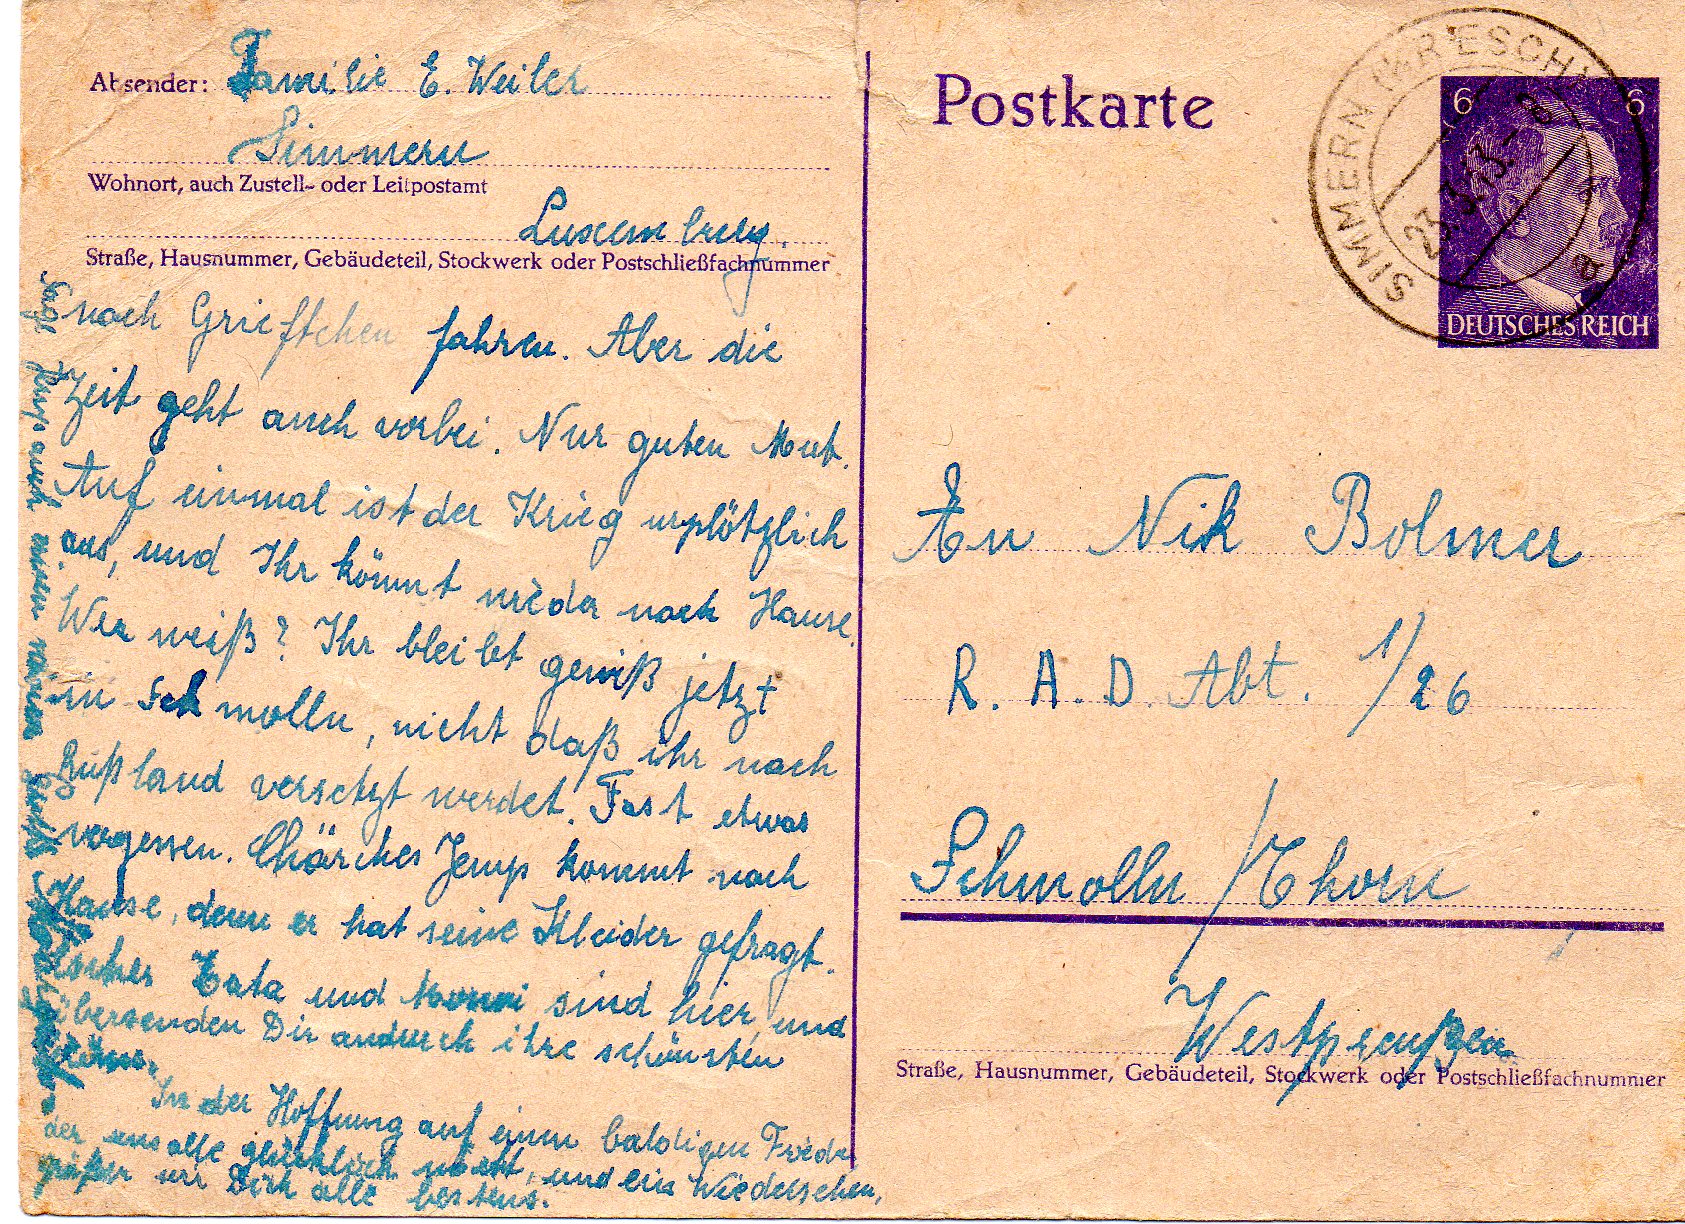 Absender: Familie E. Weiler
Simmern
Wohnort, auch Zustell- oder Leitpostamt
Luxemburg.
Straße, Hausnummer, Gebäudeteil, Stockwerk oder Postschließfachnummer
nach fahren. Aber die
Zeit geht auch vorbei. Nur guten Mut.
Auf einmal ist der Krieg urplötzlich
aus, und Ihr kömmt wieder nach Hause.
Wer weiß? Ihr bleibt gewiß jetzt
in Schmolln, nicht daß ihr nach
Rußland versetzt werdet. Fast etwas
vergessen. Jemp kommt nach
Hause, denn er hat seine Kleider gefragt.
Tata und sind hier, und
übersenden Dir andurch ihre schönsten
In der Hoffnung auf einen baldigen Friede,
der uns alle glücklich macht, und ein Wiedersehen,
grüßen wir Dich alle bestens.
Postkarte
6 6
DEUTSCHES REICH
SIMMERN
23.3.43.- 8
a
An Nik Bolmer
R. A. D. Abt. 1/26
Schmolln / Thorn
Westpreußen
Straße, Hausnummer, Gebäudeteil, Stockwerk oder Postschließfachnummer